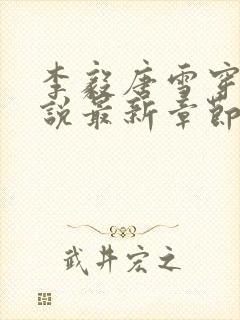 李毅唐雪穿
說最新章節
武井宏之